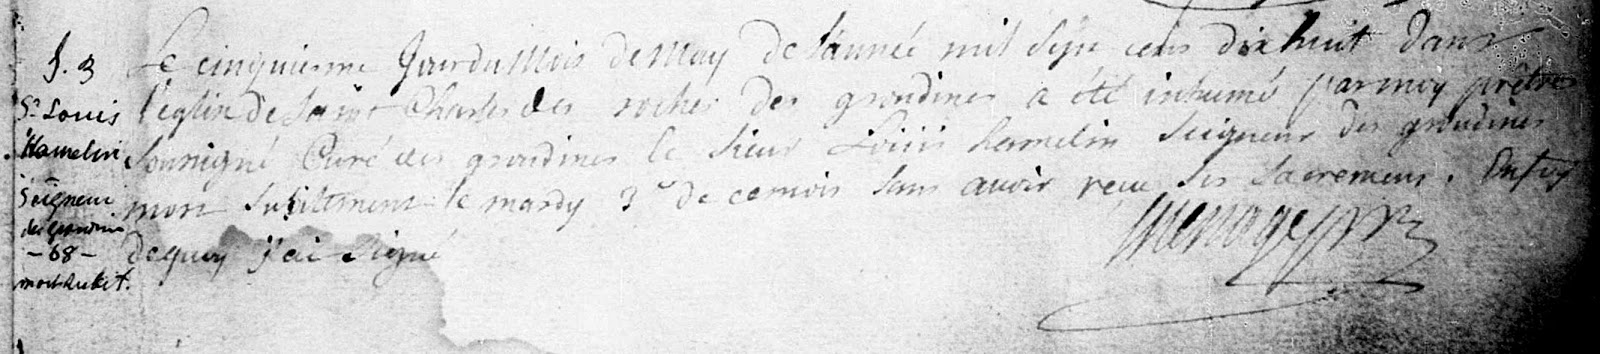 S. 3
Sr Louis
Hamelin
Seigneur
des grondines
- 68 -
mort subit.
Le cinquiesme Jour du Mois de May de l'année mil sept cens dix huit dans
l'Eglise de Saint Charles des roches des grondines a été inhumé par moy prêtre
soussigné Curé des grondines le sieur Loüis hamelin Seigneur des grondines
mort subittement le mardy 3e de ce mois sans avoir receu ses sacremens. En foy
de quoy j'ai signé
Menage ptre